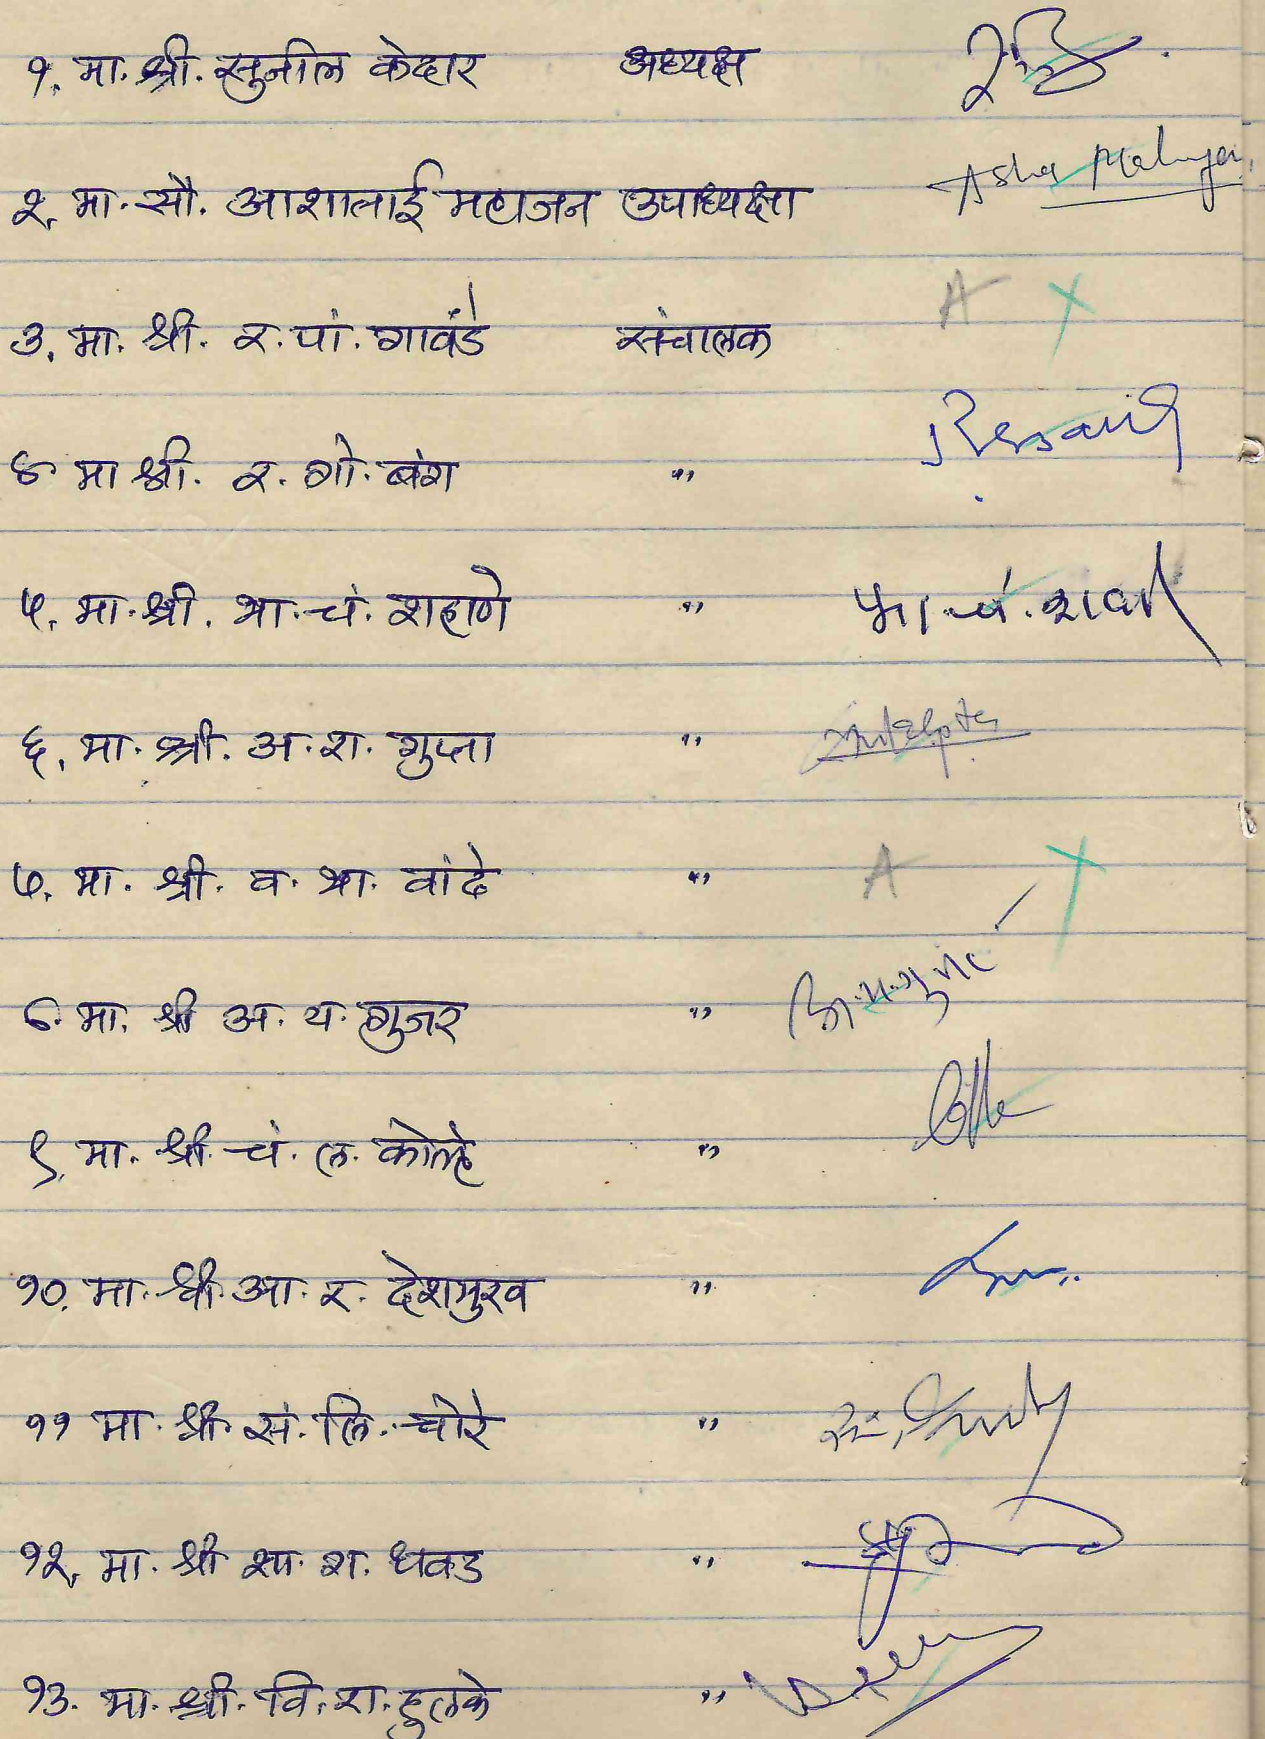 १. मा. श्री. सुनील केदार अध्यक्ष
२. मा. सौ. आशाताई महाजन उपाध्यक्षा Asha
३. मा. श्री. र. पां. गावंडे संचालक A X
४. मा श्री. र. गो. बंग "
५. मा. श्री. भा. चं. शहाणे " भा. चं. शहाणे
६. मा. श्री. अ. रा. गुप्ता "
७. मा. श्री. व. भा. वांदे " A X
८. मा. श्री अ. य. गुजर "
९. मा. श्री. चं. ल. कोल्हे "
१०. मा. श्री. आ. र. देशमुख "
११ मा. श्री. सं. लि. चोरे "
१२. मा. श्री शा. रा. धवड "
१३. मा. श्री. वि. रा. हुलके "